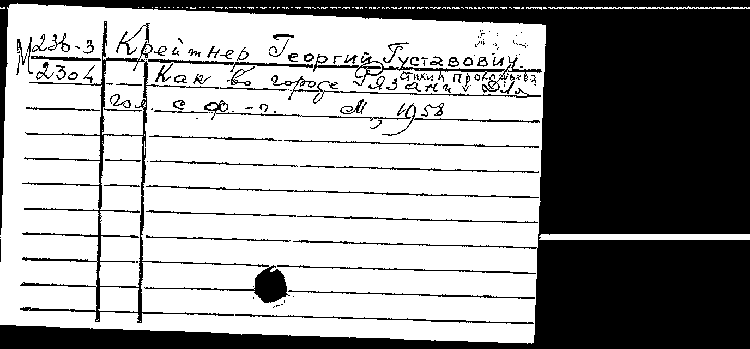 М 236-3 Крейтнер Георгий Густавович.
2304 Как во городе Рязани Для
гол. с ф.-п. М., 1958